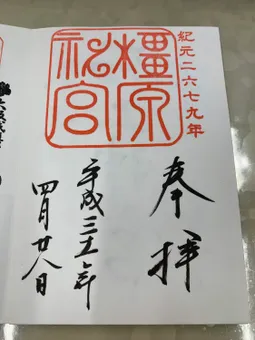 紀元二六七九年
橿原
神宮
奉拝
平成三十一年
四月廿八日